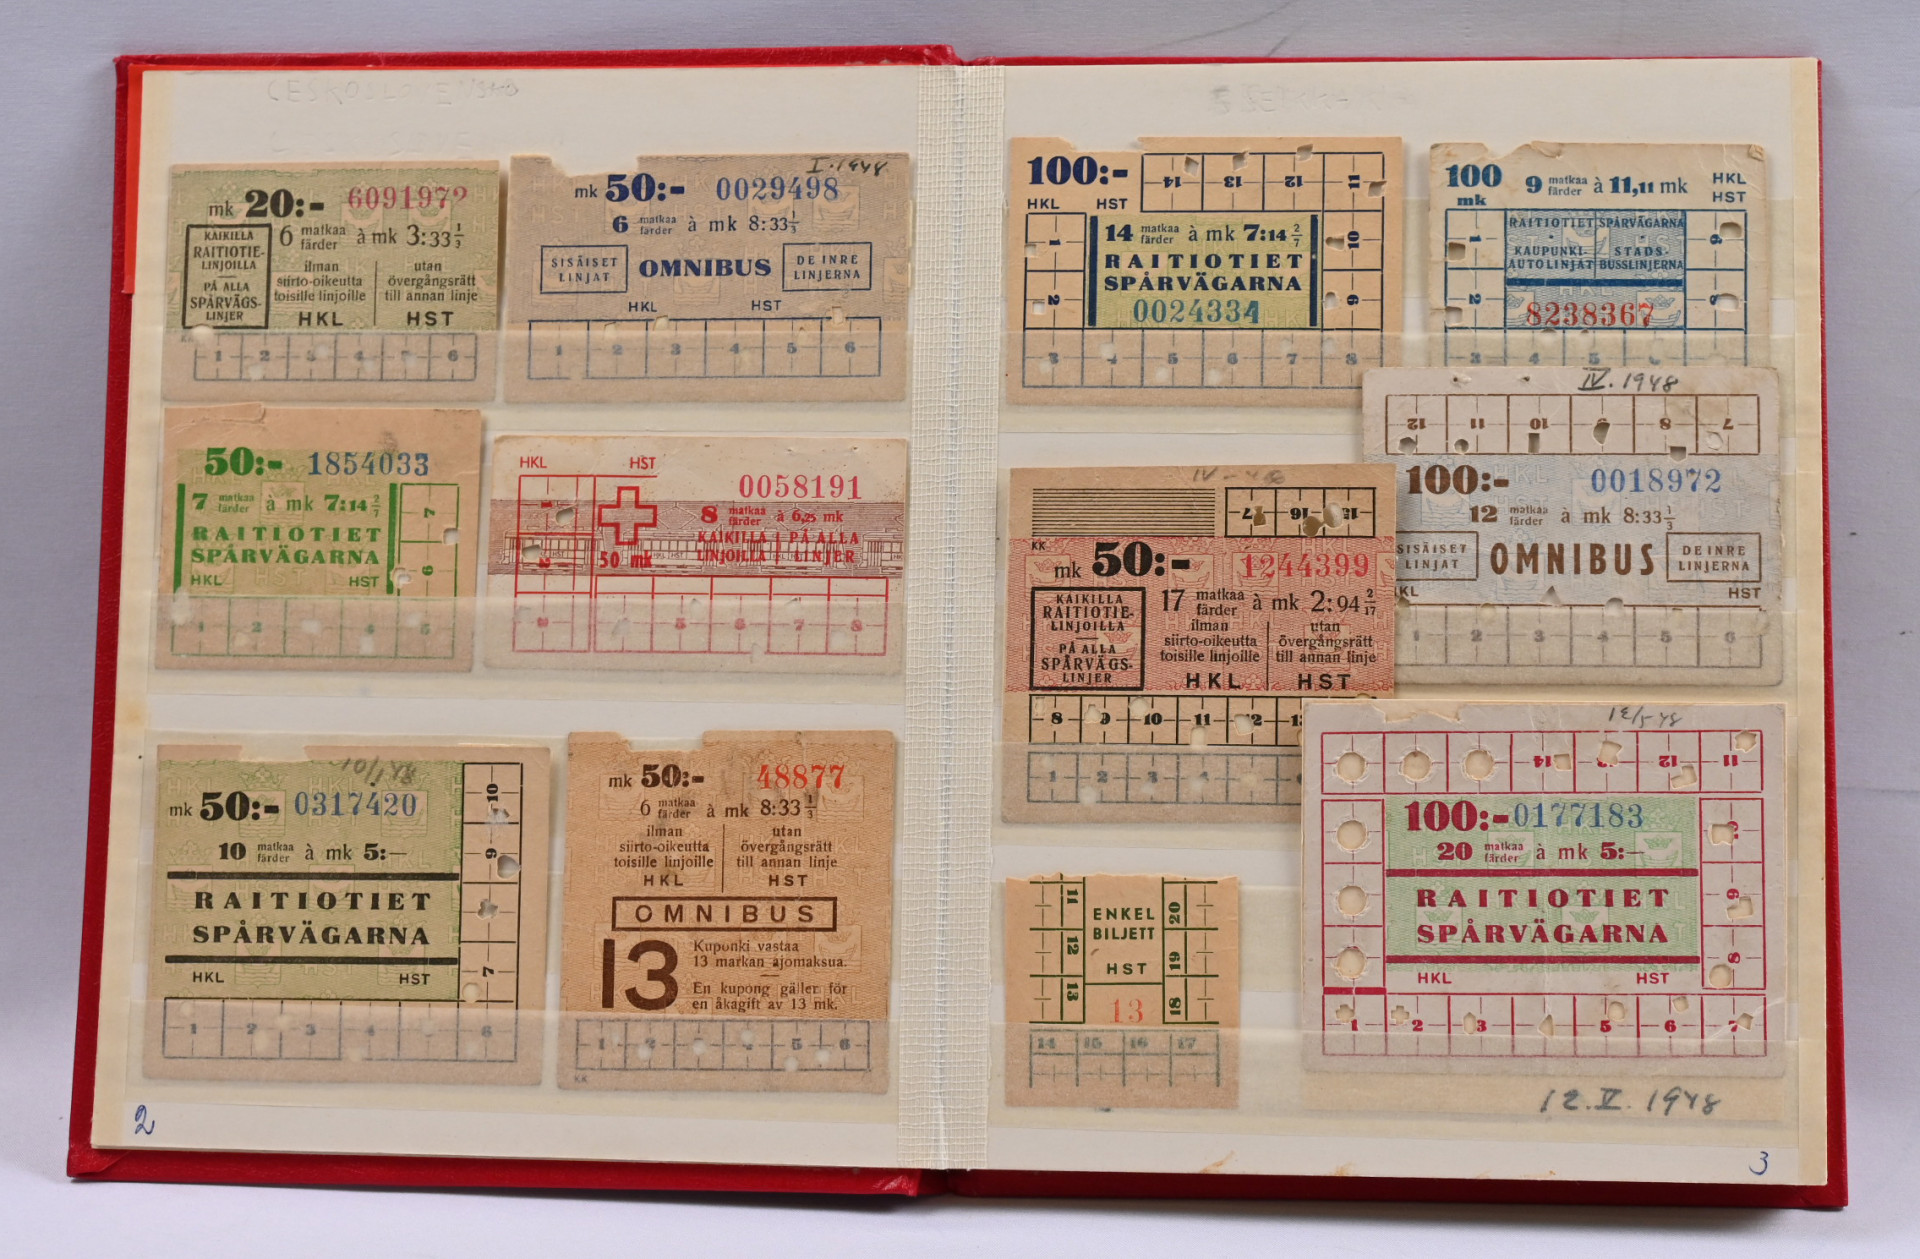 mk 20:- 6091972
6 matkaa färder à mk 3:33 1/3
KAIKILLA
RAITIOTIE-
LINJOILLA
PÅ ALLA
SPÅRVÄGS-
LINJER
ilman
siirto-oikeutta
toisille linjoille
HKL
utan
övergångsrätt
till annan linje
HST
1 2 3 4 5 6
I.1948
mk 50:- 0029498
6 matkaa färder à mk 8:33 1/3
SISÄISET
LINJAT
OMNIBUS
DE INRE
LINJERNA
HKL HST
1 2 3 4 5 6
50:- 1854033
7 matkaa färder à mk 7:14 2/7
RAITIOTIET
SPÅRVÄGARNA
HKL HST
7
6
1 2 3 4 5
HKL HST
0058191
8 matkaa färder à 6,25 mk
KAIKILLA
LINJOILLA
PÅ ALLA
LINJER
50 mk
1
2
3 5 6 7 8
10/1 48
mk 50:- 0317420
10 matkaa färder à mk 5:-
RAITIOTIET
SPÅRVÄGARNA
HKL HST
10
9
7
1 2 3 4 6
mk 50:- 48877
6 matkaa färder à mk 8:33 1/3
ilman
siirto-oikeutta
toisille linjoille
HKL
utan
övergångsrätt
till annan linje
HST
OMNIBUS
13
Kuponki vastaa
13 markan ajomaksua.
En kupong gäller för
en åkagift av 13 mk.
1 2 3 4 5 6
KK
2
100:-
HKL HST
14 13 12 11
14 matkaa färder à mk 7:14 2/7
RAITIOTIET
SPÅRVÄGARNA
0024334
1
2
10
9
3 4 5 6 7 8
100
mk
9 matkaa färder à 11,11 mk
HKL
HST
RAITIOTIET SPÅRVÄGARNA
KAUPUNKI-
AUTOLINJAT
STADS-
BUSSLINJERNA
8238367
1
2
9
8
3 4 5 6
IV.1948
12 11 10 9 8 7
100:- 0018972
12 matkaa färder à mk 8:33 1/3
SISÄISET
LINJAT
OMNIBUS
DE INRE
LINJERNA
HKL HST
1 2 3 4 5 6
17 16 15
KK
mk 50:- 1244399
17 matkaa färder à mk 2:94 2/17
KAIKILLA
RAITIOTIE-
LINJOILLA
PÅ ALLA
SPÅRVÄGS-
LINJER
ilman
siirto-oikeutta
toisille linjoille
HKL
utan
övergångsrätt
till annan linje
HST
8 9 10 11 12
1 2 3 4 5
14 13 12 11
100:- 0177183
20 matkaa färder à mk 5:-
RAITIOTIET
SPÅRVÄGARNA
HKL HST
9
8
1 2 3 4 5 6 7
12.V.1948
11
12
13
ENKEL
BILJETT
HST
13
20
19
18
14 15 16 17
3